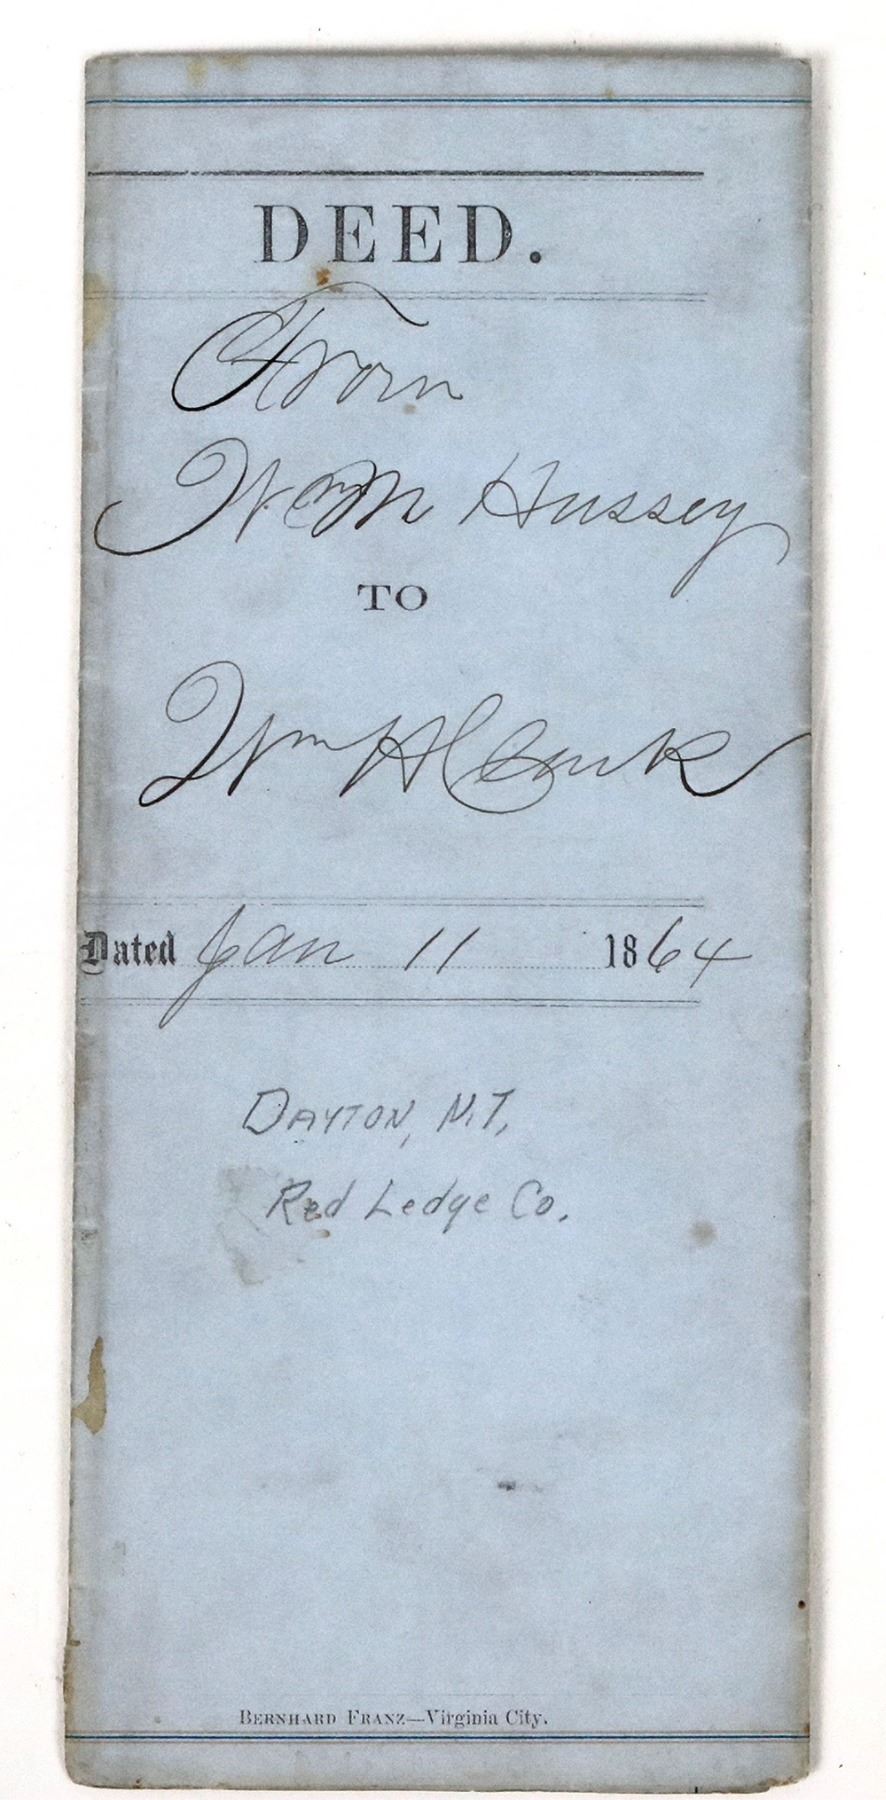 DEED.
From
Wm M Hussey
TO
Wm H Clark
Dated Jan 11 1864
DAYTON, N.T.
Red Ledge Co.
BERNHARD FRANZ—Virginia City.